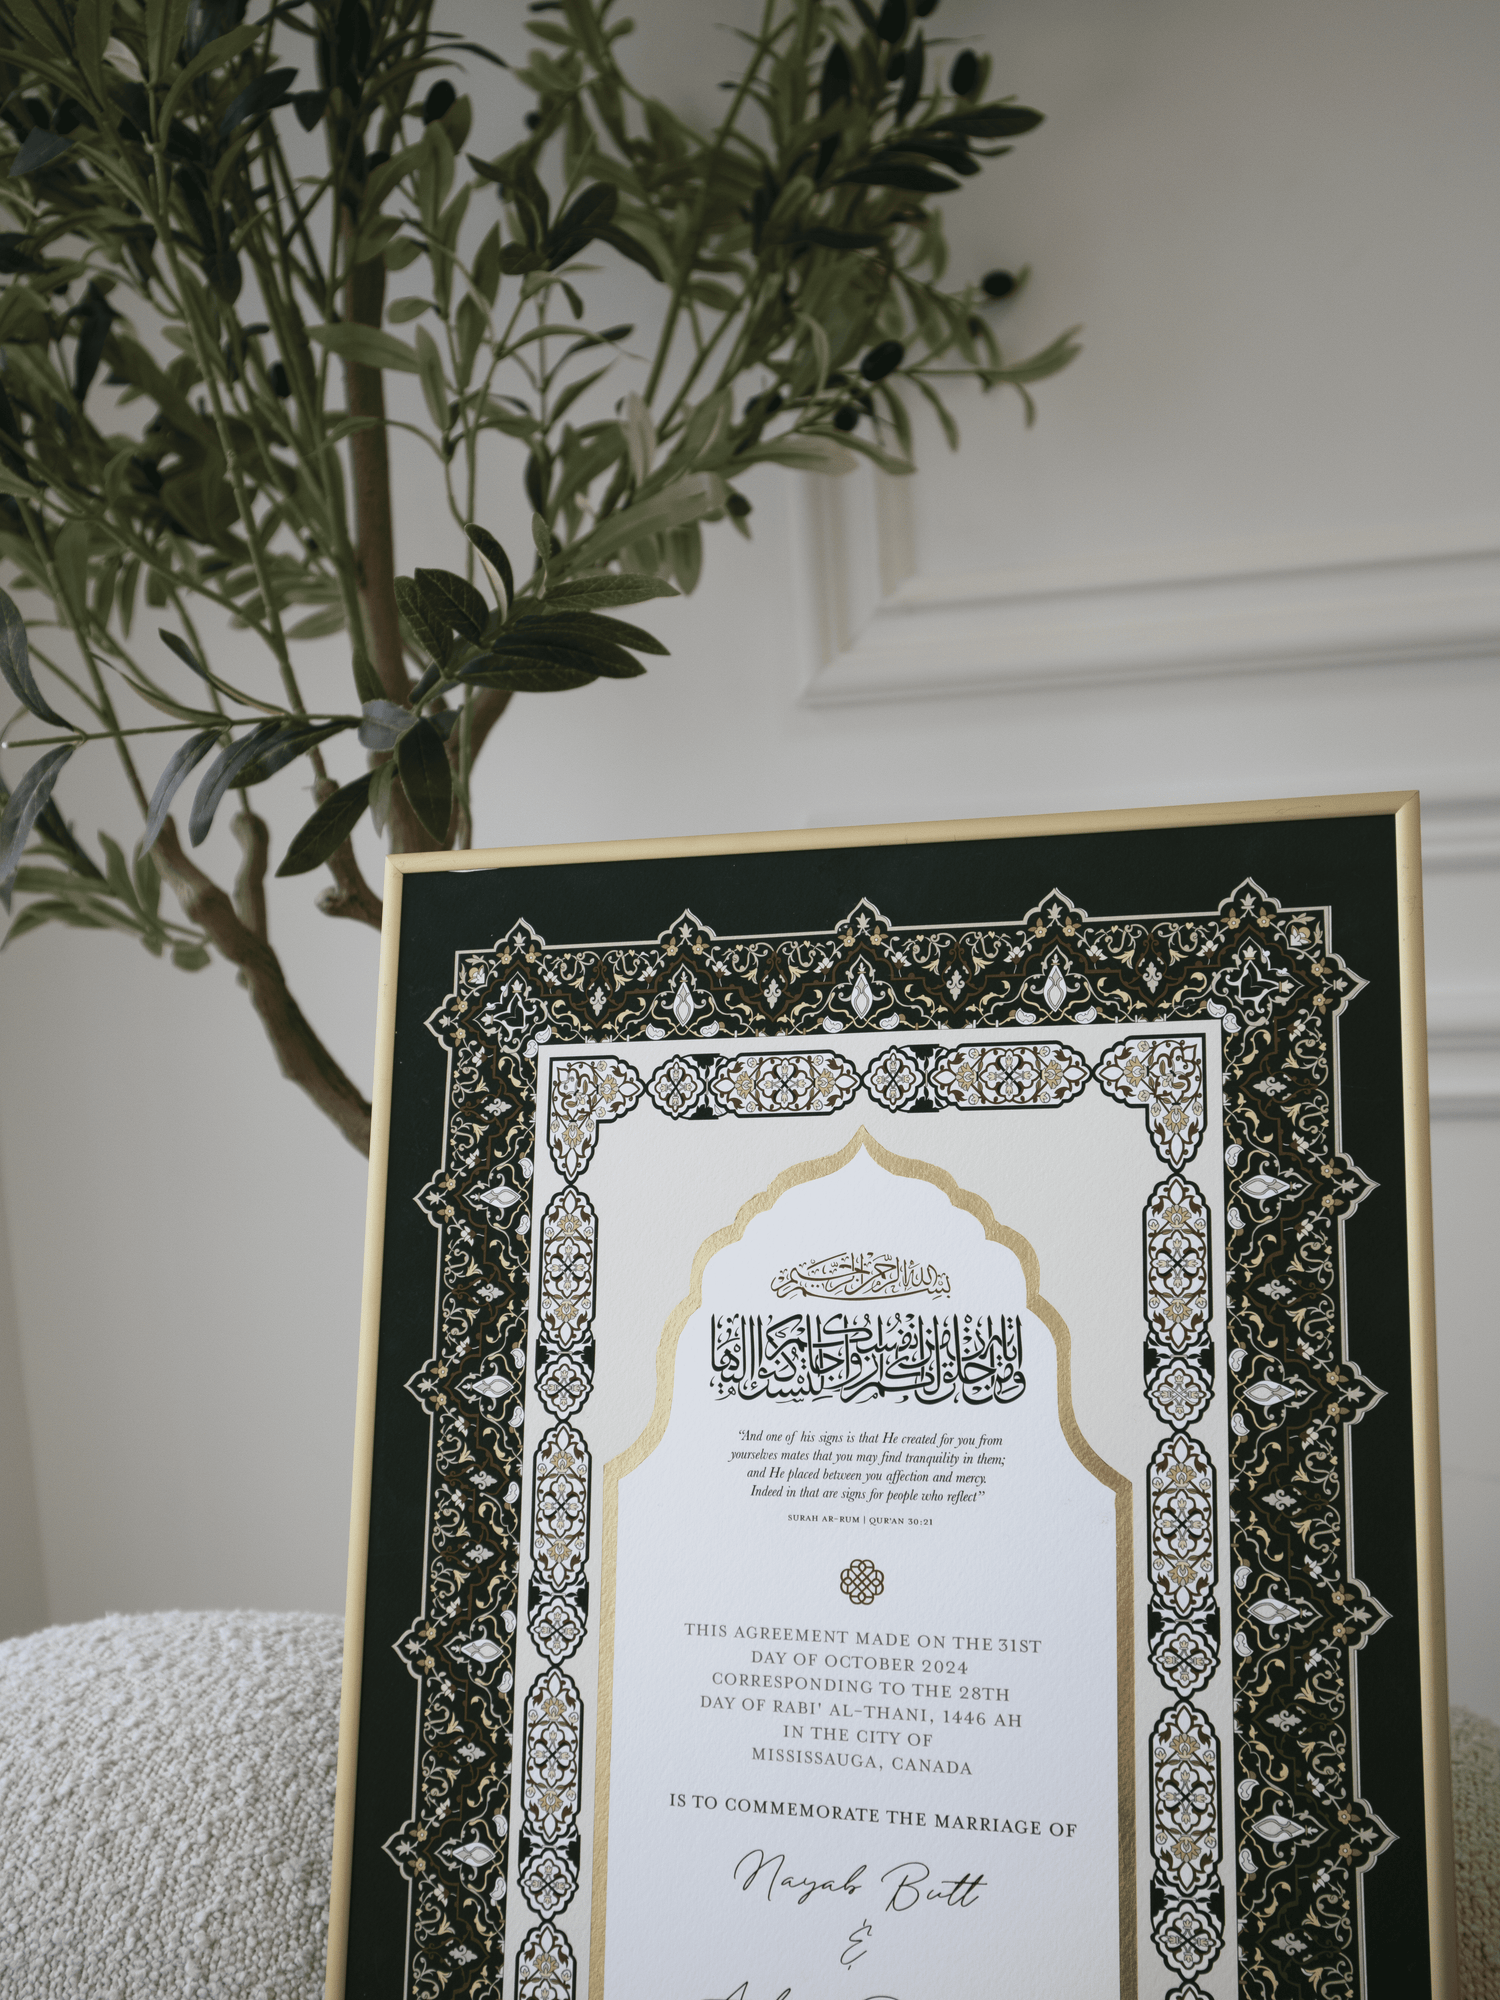 بسم الله الرحمن الرحيم
ومن آياته أن خلق لكم من أنفسكم أزواجا لتسكنوا إليها
“And one of his signs is that He created for you from
yourselves mates that you may find tranquility in them;
and He placed between you affection and mercy.
Indeed in that are signs for people who reflect”
SURAH AR-RUM | QUR'AN 30:21
THIS AGREEMENT MADE ON THE 31ST
DAY OF OCTOBER 2024
CORRESPONDING TO THE 28TH
DAY OF RABI' AL-THANI, 1446 AH
IN THE CITY OF
MISSISSAUGA, CANADA
IS TO COMMEMORATE THE MARRIAGE OF
Nayab Butt
&